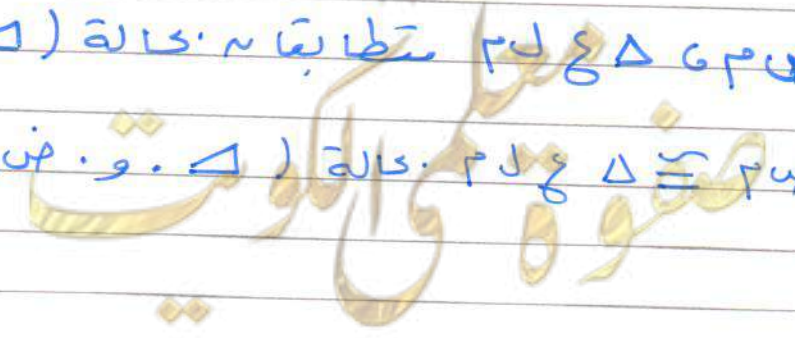 س م ، △ ع ل م متطابقان بحالة ( ⊿
س م ≅ △ ع ل م بحالة ( ⊿ . و . ض
صفوة معلمى الكويت